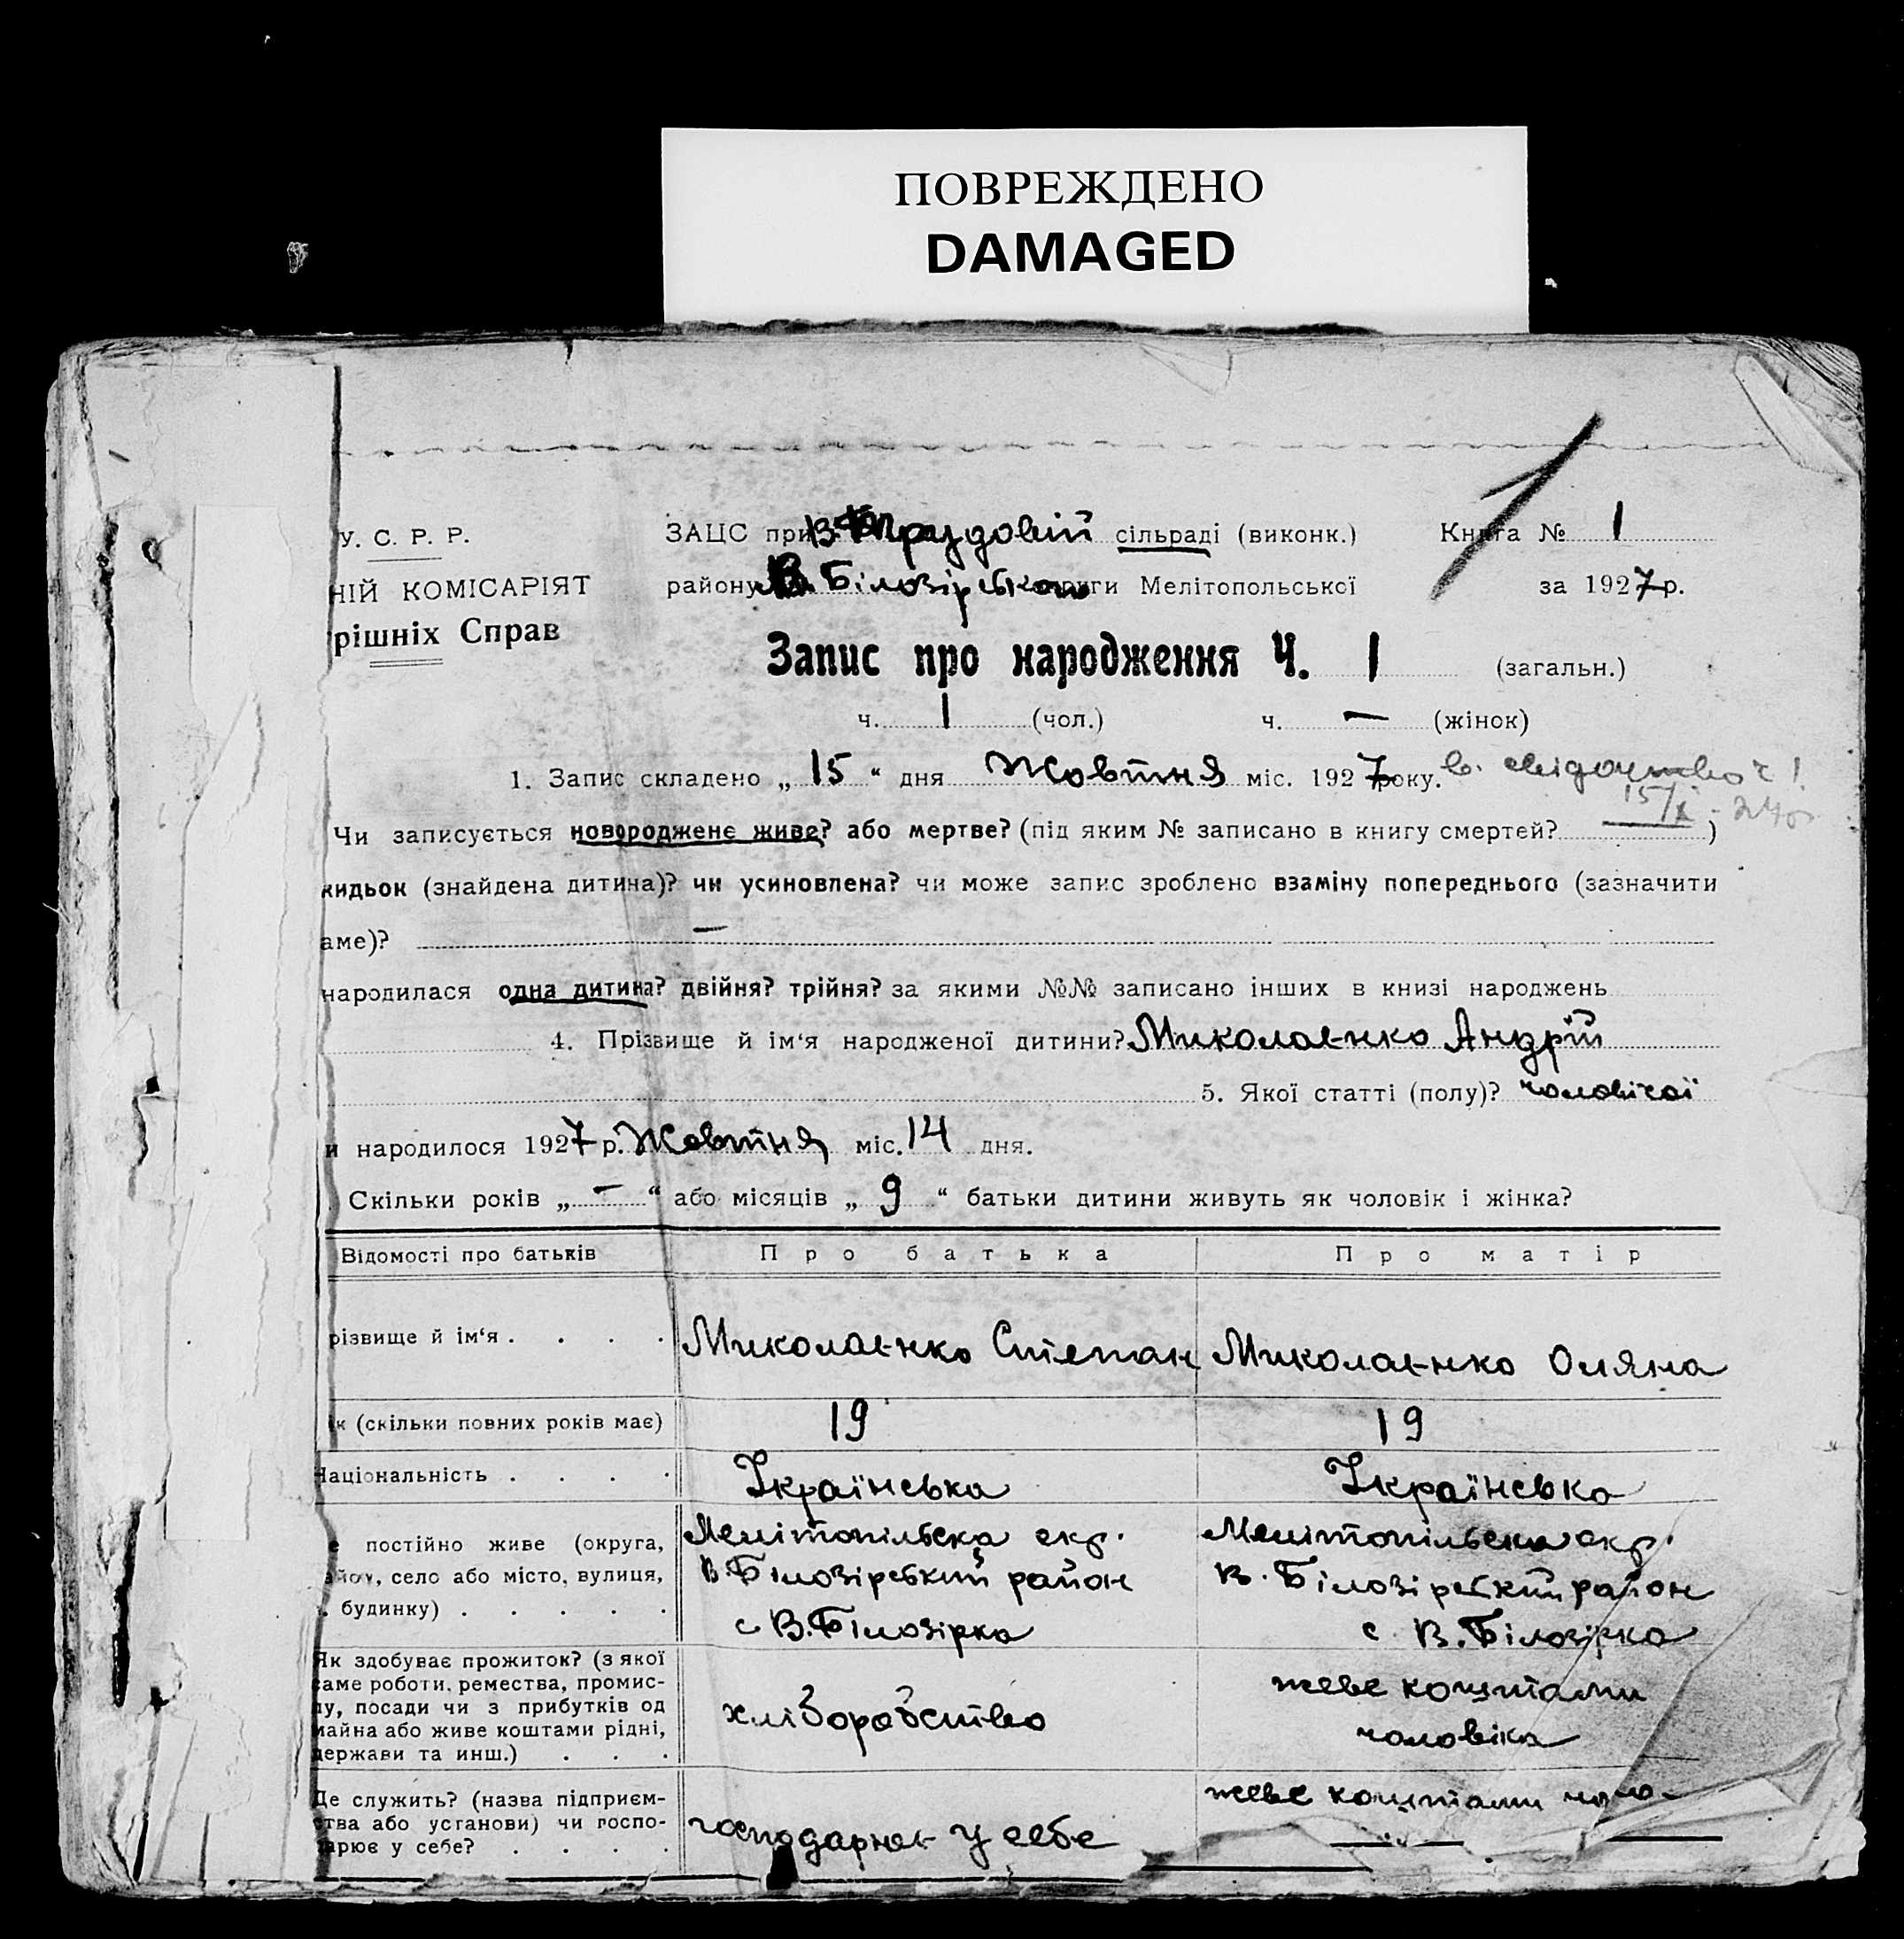 ПОВРЕЖДЕНО
DAMAGED
У. С. Р. Р.
НІЙ КОМІСАРІЯТ
рішніх Справ
ЗАЦС при В Трудовій сільраді (виконк.)
району В. Білозірського округи Мелітопольської
Книга № 1
за 1927 р.
Запис про народження Ч. 1 (загальн.)
ч. 1 (чол.) ч. — (жінок)
1. Запис складено „ 15 “ дня Жовтня міс. 1927 року.
15/X - 27 р.
Чи записується новороджене живе? або мертве? (під яким № записано в книгу смертей? )
кидьок (знайдена дитина)? чи усиновлена? чи може запис зроблено взаміну попереднього (зазначити
аме)? —
народилася одна дитина? двійня? трійня? за якими №№ записано інших в книзі народжень
4. Прізвище й ім‘я народженої дитини? Миколаєнко Андрій
5. Якої статті (полу)? чоловічої
и народилося 1927 р. Жовтня міс. 14 дня.
Скільки років „ — “ або місяців „ 9 “ батьки дитини живуть як чоловік і жінка?
Відомості про батьків Про батька Про матір
різвище й ім‘я . . . . Миколаєнко Степан Миколаєнко Оляна
ік (скільки повних років має) 19 19
Національність . . . . Українська Українська
е постійно живе (округа,
айон, село або місто, вулиця,
будинку) . . . . .
Мелітопільська окр.
В. Білозірський район
с В. Білозірка
Мелітопільська окр.
В. Білозірський район
с. В. Білозірка
Як здобуває прожиток? (з якої
саме роботи, ремества, промис-
лу, посади чи з прибутків од
майна або живе коштами рідні,
держави та инш.) . . .
хліборобство
живе коштами
чоловіка
Де служить? (назва підприєм-
ства або установи) чи госпо-
дарює у себе? . . . .
господарює у себе
живе коштами чоло-